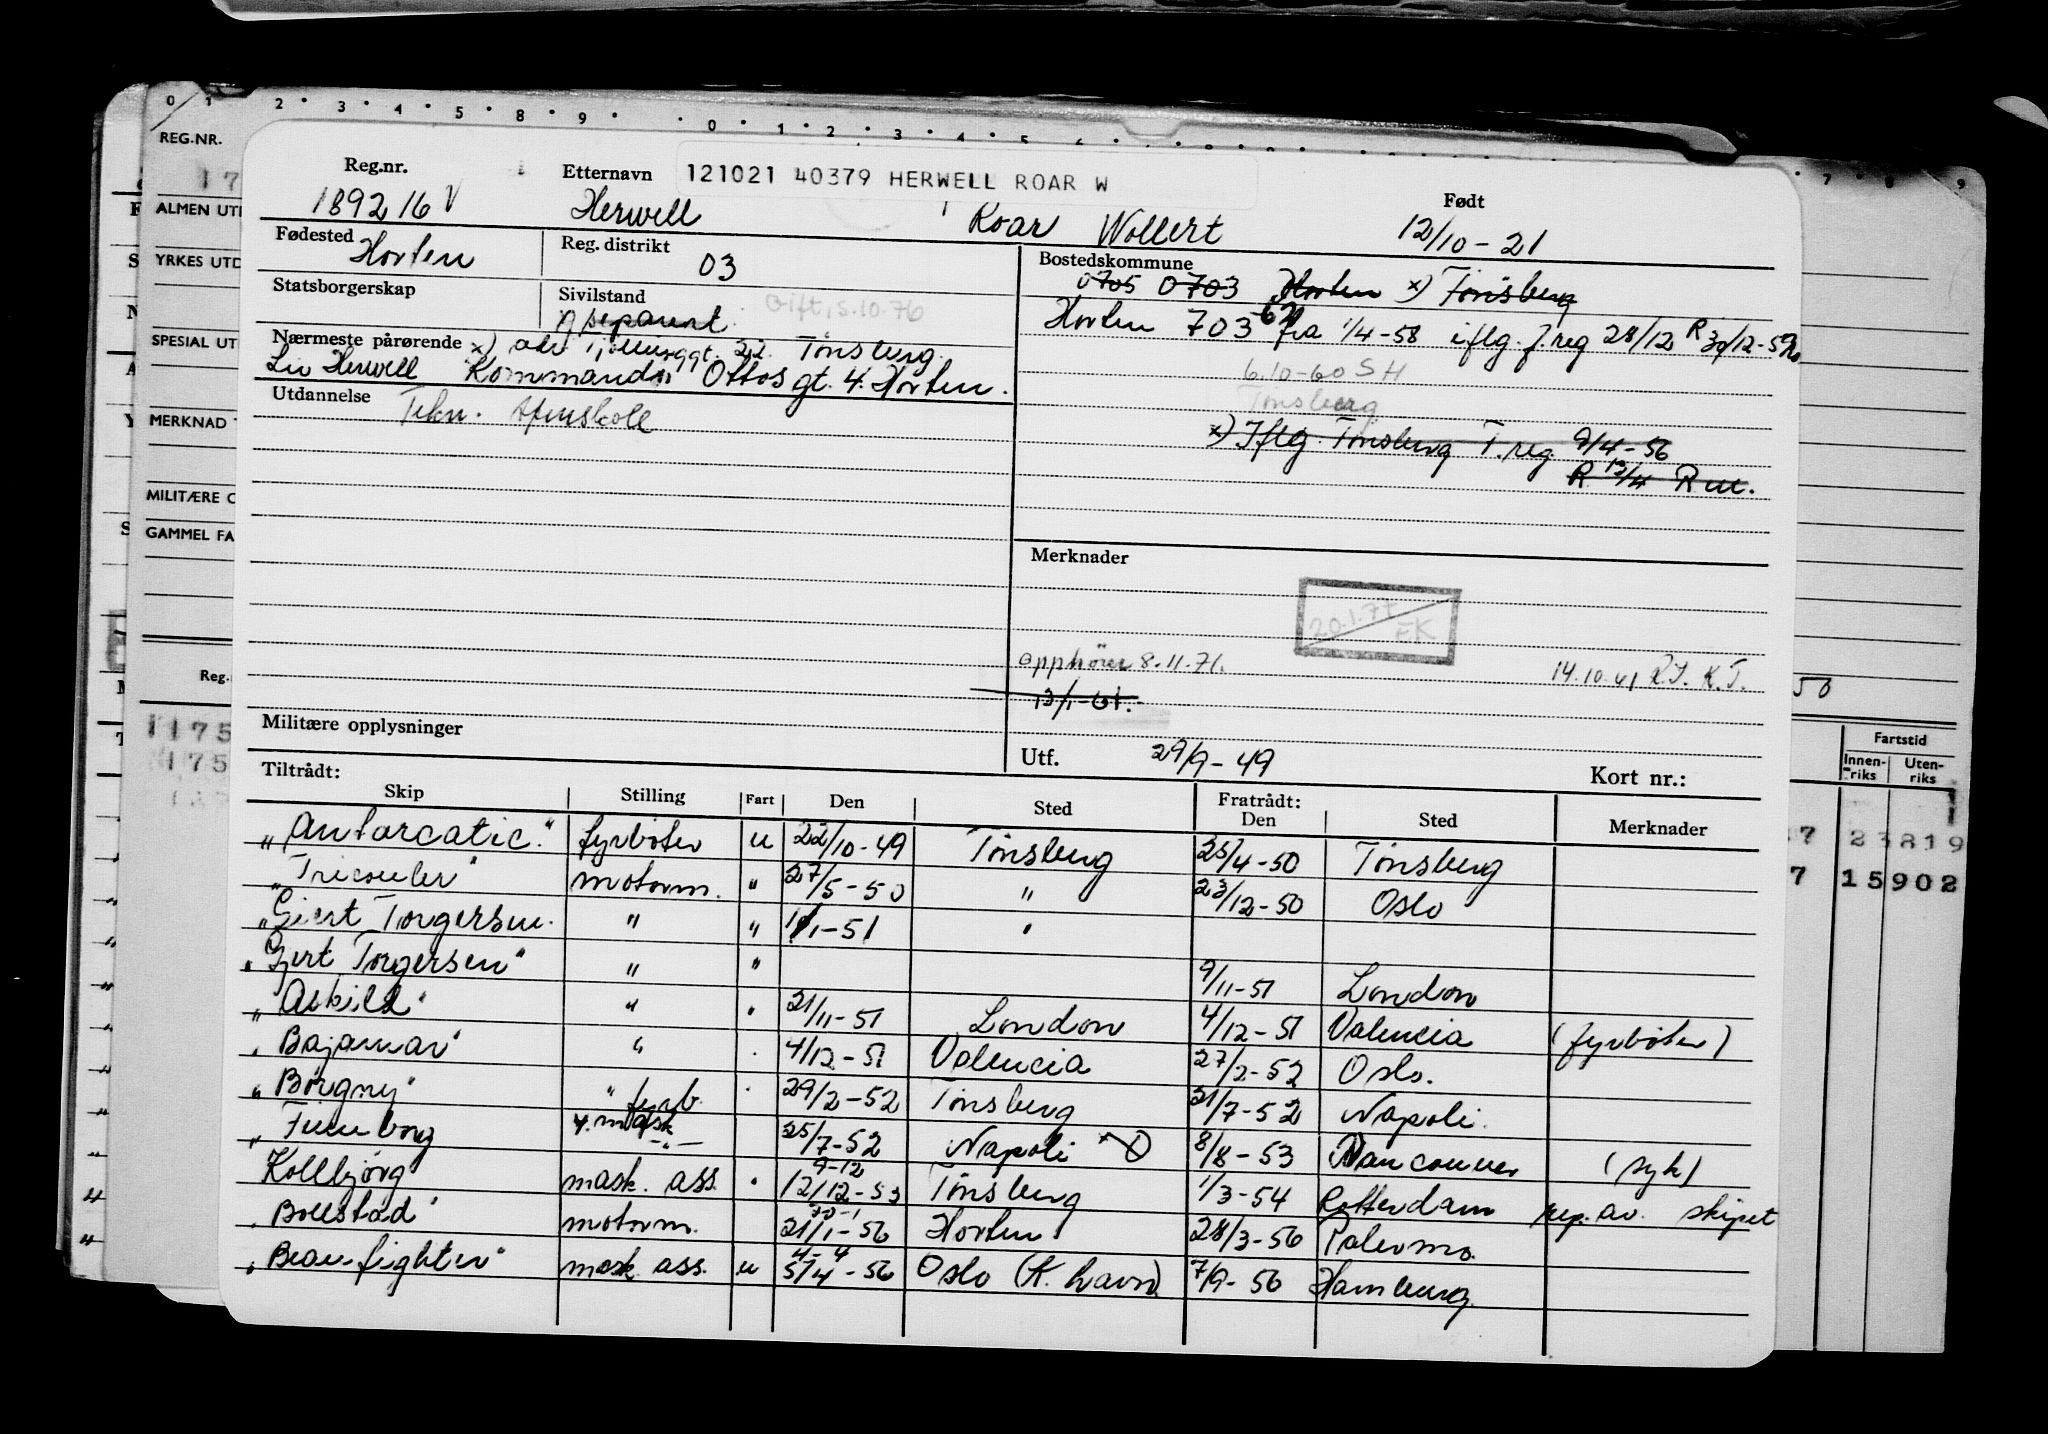 0 1 2 3 4 5 8 9 0 1 2 3 4 5
REG.NR.
ALMEN UT
YRKES UTD
SPESIAL UT
MERKNAD
MILITÆRE O
GAMMEL FA
Reg.
1175
175
Reg.nr. Etternavn 121021 40379 HERWELL ROAR W Født
1892 16 V Herwell Roar Wollert 12/10-21
Fødested Horten Reg. distrikt 03 Bostedskommune
0705 0703 Horten x) Tönsberg
Statsborgerskap Sivilstand Gift, 5.10.76
separert
Horten 703 fra 1/4-58 iflg. f.reg 28/12 R 30/12-59
Nærmeste pårørende x) Tönsberg.
Liv Herwell Kommandør Ottos gt. 4. Horten.
6.10-60 SH
Tönsberg
Utdannelse Tekn. Aftenskole
x) Iflg. Tönsberg T.reg. 9/4-56
R 13/4
Merknader
20.1.77
EK
opphörer 8.11.71.
14.10.41 R.T. K.T.
13/1-61.
50
Militære opplysninger
Utf. 29/9-49 Kort nr.:
Tiltrådt: Fratrådt:
Skip Stilling Fart Den Sted Den Sted Merknader
Fartstid
Innen-riks Uten-riks
7 23819
7 15902
"Antarcatic." fyrböter u 22/10-49 Tönsberg 25/4-50 Tönsberg
"Tricouler" motorm. " 27/5-50 " 23/12-50 Oslo
"Giert Torgersen. " " 1/1-51 "
"Gjert Torgersen" " " 9/11-51 London
"Askild" " " 21/11-51 London 4/12-51 Valencia (fyrböter)
"Bajamar" " . 4/12-51 Valencia 27/2-52 Oslo.
"Borgny" " fyrb. . 29/2-52 Tönsberg 21/7-52 Napoli.
"Ferncborg 4. mask -"- 25/7-52 Napoli 8/8-53 Vancouver (syk)
Kollbjørg mask. ass. " 9-12 12/12-53 Tönsberg 1/3-54 Rotterdam rep. av. skipet
"Bollstad" motorm. 21/1-56 Horten 28/3-56 Palermo.
"Beau-fighter" mask. ass. u 4-4 5/4-56 Oslo (K. havn) 7/9-56 Hamburg.